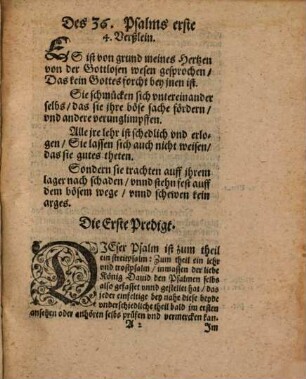 Des 36. Psalms erste
4. Verßlein.
ES ist von grund meines Hertzen
von der Gottlosen wesen gesprochen /
Das kein Gottes forcht bey jnen ist.
Sie schmücken sich vntereinander
selbs / das sie jhre böse sache fördern /
vnd andere verunglimpffen.
Alle jre lehr ist schedlich vnd erlo-
gen / Sie lassen sich auch nicht weisen /
das sie gutes theten.
Sondern sie trachten auff jhrem
lager nach schaden / vnnd stehn fest auff
dem bösem wege / vnnd schewen kein
arges.
Die Erste Predigt.
DIEser Psalm ist zum theil
ein streitpsalm: Zum theil ein lehr
vnd trostpsalm / inmassen der liebe
König Dauid den Psalmen selbs
also gefasset vnnd gestellet hat / das
jeder einfeltige bey nahe diese beyde
vnderschiedliche theil bald im ersten
ansehen oder anhören selbs prüfen vnd vermercken kan.
A 2 Im